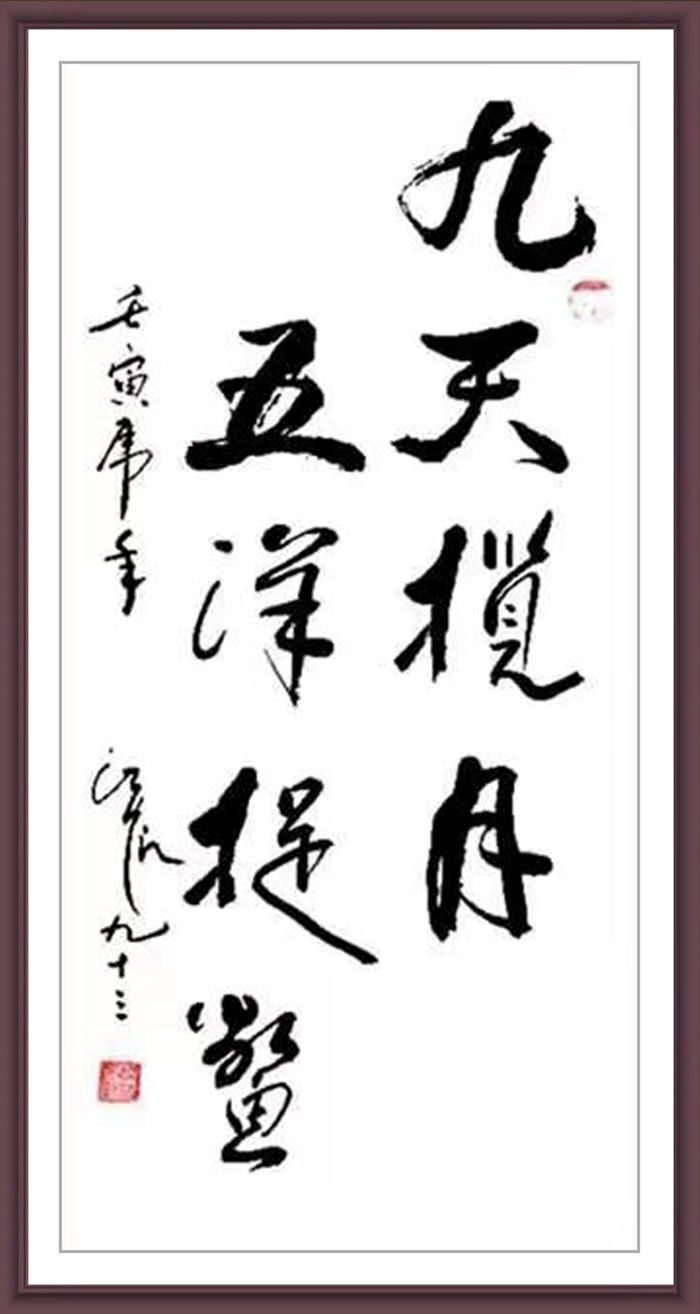 九天揽月
五洋捉鳖
壬寅虎年
九十三